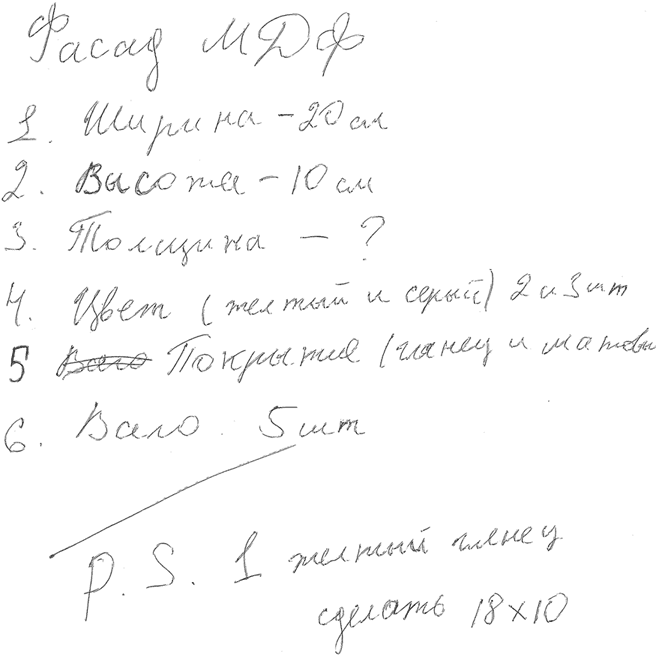 Фасад МДФ
1. Ширина - 20 см
2. Высота - 10 см
3. Толщина - ?
4. Цвет (желтый и серый) 2 и 3 шт
5 Покрытие (глянец и матовы
6. Всего 5 шт
P.S. 1 желтый глянец
сделать 18х10